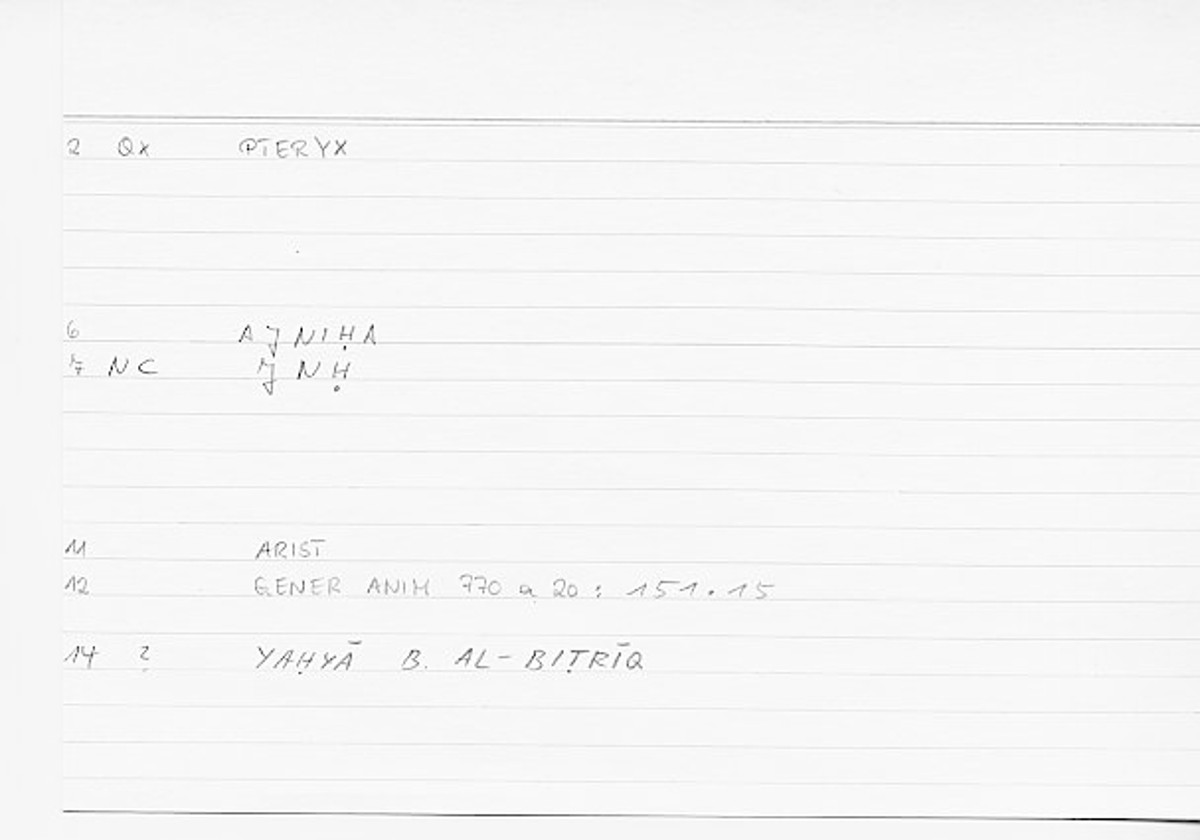 2 Qx PTERYX
6 AǦNIḤA
7 NC ǦNḤ
11 ARIST
12 GENER ANIM 770 a 20 : 151.15
14 ? YAḤYĀ B. AL-BIṬRĪQ